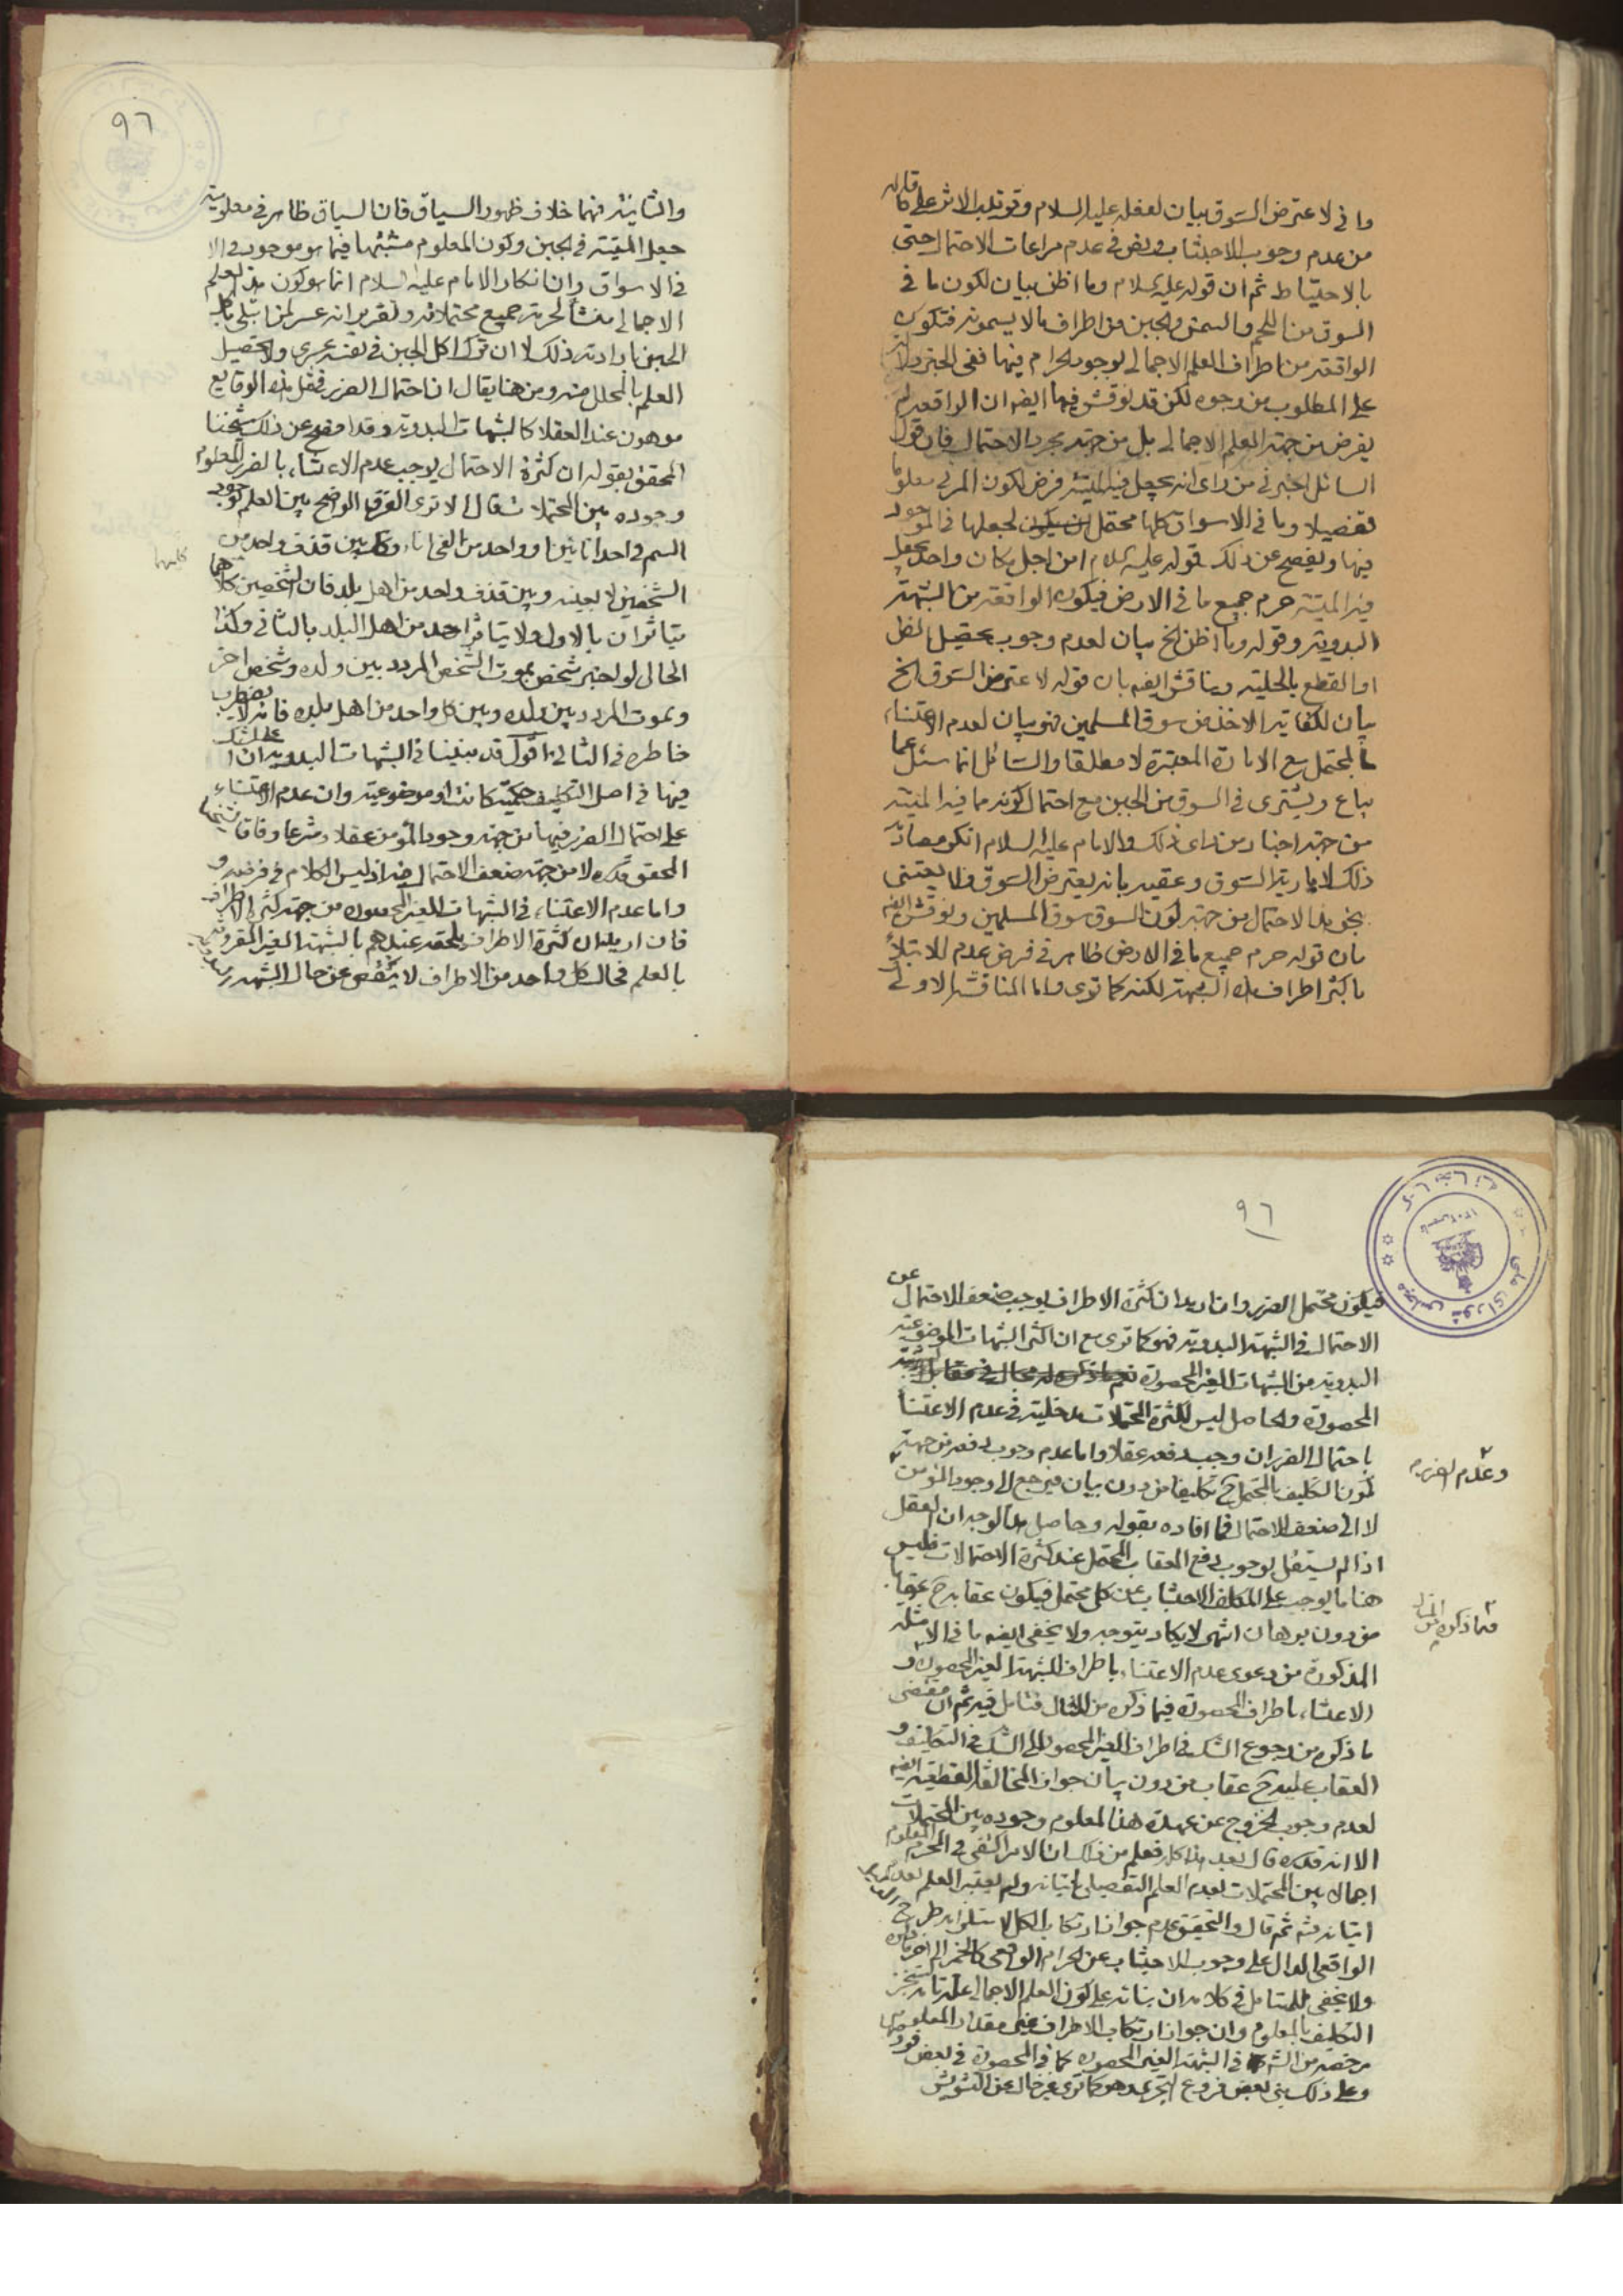 وما في لاعترض السوق بيان لفعله عليه السلام وتوتب الاثر على
من عدم وجوب الاجتناب ويض في عدم مراعات الاحتمال حتى
بالاحتياط ثم ان قوله عليه السلام وما اظن بيان لكون ما في
السوق من اللحم والسمن والجبن من اطراف ما لا يسمون فتكون
الواقعة من اطراف العلم الاجمالي لوجود الحرام فيها ففي الخبر دلالة
على المطلوب من وجوه لكن قد نوقش فيها ايضه ان الواقعة لم
يفرض من جهة العلم الاجمالي بل من جهة مجرد الاحتمال فان قول
السائل اخبرني من راى انه يجعل فيه الميتة فرض لكون المرئي معلوما
تفصيلا وما في الاسواق كلها محتمل لجعلها في الموجود
فيها ويفصح عن ذلك قوله عليه السلام امن اجل مكان واحد يجعل
فيه الميتة حرم جميع ما في الارض فيكون الواقعة من الشبهة
البدوية وقوله وما اظن الخ بيان لعدم وجوب تحصيل الظن
او القطع بالحلية ويناقش ايضه بان قوله لاعترض السوق الخ
بيان لكفاية الاخذ من سوق المسلمين فهو بيان لعدم الاعتناء
بالمحتمل مع الامارة المعتبرة لا مطلقا والسائل انما سئل عما
يباع ويشترى في السوق من الجبن مع احتمال كونه مما فيه الميتة
من جهة اخبار من راى ذلك والامام عليه السلام انكر
ذلك لامارية السوق وعقبه بانه يعترض السوق فلا يعتنى
بنحو هذا الاحتمال من جهة كون السوق سوق المسلمين ونوقش ايضه
بان قوله حرم جميع ما في الارض ظاهر في فرض عدم الابتلاء
باكثر اطراف هذه الشبهة لكنه كما ترى واما المناقشة الاولى
٩٦
والثانية فهما خلاف ظهور السياق فان السياق ظاهر في معلومية
جعل الميتة في الجبن وكون المعلوم مشتبها فيما هو موجود في الا
في الاسواق وان انكار الامام عليه السلام انما هو كون هذا العلم
الاجمالي منشأ لحرمة جميع محتملاته وتقريره انه عسر لمن ابتلى باكل
الجبن ارادته ذلك لا ان ترك اكل الجبن في نفسه عسرى ولا تحصيل
العلم بالمحلل منه ومن هنا يقال ان احتمال الضرر في مثل هذه الوقايع
موهون عند العقلا كالشبهات البدوية وقد افصح عن ذلك شيخنا
المحقق بقوله ان كثرة الاحتمال يوجب عدم الاعتناء بالضرر المعلوم
وجوده بين المحتملات فقال الا ترى الفرق الواضح بين العلم بوجود
السم في احد انائين او واحد من الفي اناء وكذلك بين قذف واحد من
الشخصين لا بعينه وبين قذف واحد من اهل بلد فان الشخصين كلاهما
كليهما
يتاثران بالاول ولا يتاثر احد من اهل البلد بالثاني وكذا
الحال لو اخبر شخص بموت الشخص المردد بين ولده وشخص اخر
وبموت المردد بين ولده وبين كل واحد من اهل بلده فانه لا يضطرب
خاطره في الثاني اقول قد بينا في الشبهات البدوية ان الشك
فيها في اصل التكليف حكمية كانت او موضوعية وان عدم الاعتناء
على احتمال الضرر فيها من جهة وجود المؤمن عقلا وشرعا وفاقا لشيخنا
المحقق قده لا من جهة ضعف الاحتمال فيه اذ ليس الكلام في فرضه و
واما عدم الاعتناء في الشبهات الغير المحصورة من جهة كثرة الاطراف
فان اريد ان كثرة الاطراف يلحقه عندهم بالشبهة الغير المقرونة
بالعلم فحال كل واحد من الاطراف لا ينقص عن حال الشبهة
٩٦
فيكون محتمل الضرر وان اريد ان كثرة الاطراف يوجب ضعف الاحتمال عن
الاحتمال في الشبهة البدوية فهو كما ترى مع ان اكثر الشبهات الموضوعية
البدوية من الشبهات الغير المحصورة
المحصورة والحاصل ليس لكثرة المحتملات مدخلية في عدم الاعتناء
باحتمال الضرر ان وجب دفعه عقلا واما عدم وجوب دفعه من جهة
وعدم الضرر
كون التكليف بالمحتمل ح تكليفا من دون بيان فيرجع الى وجود المؤمن
لا الى ضعف الاحتمال فما افاده بقوله وحاصل هذا الوجه ان العقل
اذا لم يستقل بوجوب دفع العقاب المحتمل عند كثرة الاحتمالات فليس
هنا ما يوجب على المكلف الاجتناب عن كل محتمل فيكون عقابه ح عقابا
من دون برهان انتهى لا يكاد يتوجه ولا يخفى ايضه ما في الامثلة
فما ذكره من المثال
المذكورة من دعوى عدم الاعتناء باطراف الشبهة الغير المحصورة و
الاعتناء باطراف المحصورة فيما ذكره من المثال فتامل فيه ثم ان مقتضى
ما ذكره من رجوع الشك في اطراف الغير المحصورة الى الشك في التكليف و
العقاب عليه ح عقاب من دون بيان جواز المخالفة القطعية ايضه
لعدم وجوب الخروج عن عهدة هذا المعلوم وجوده بين المحتملات
الا انه قده قال بعد هذا كله فعلم من ذلك ان الامر اكتفى في المحرم المعلوم
اجمالا بين المحتملات بعدم العلم التفصيلي باتيانه ولم يعتبر العلم بعدم
اتيانه فتم ثم قال والتحقيق عدم جواز ارتكاب الكل لاستلزامه طرح
الواقعي الدال على وجوب الاجتناب عن الحرام الواقعي كالخمر الى اخر ما ذكره
ولا يخفى للمتامل في كلامه ان بنائه على كون العلم الاجمالي علة تامة لتنجز
التكليف بالمعلوم وان جواز ارتكاب الاطراف غير مقدار المعلوم
مرخصة من الشرع في الشبهة الغير المحصورة كما في المحصورة في بعض
وعلى ذلك بنى بعض فروع التي عده هو كما ترى غير خال عن التشويش